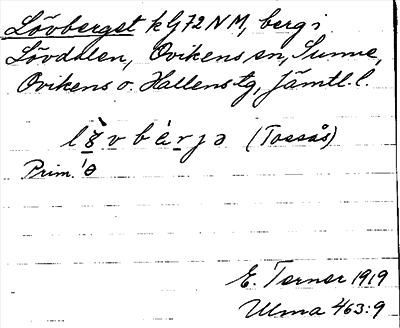 Lövberget kG72NM, berg i
Lövdalen, Ovikens sn, Sunne,
Ovikens o. Hallens tg, Jämtl. l.
(Tossås)
Prim.
E. Terner 1919
Ulma 463:9